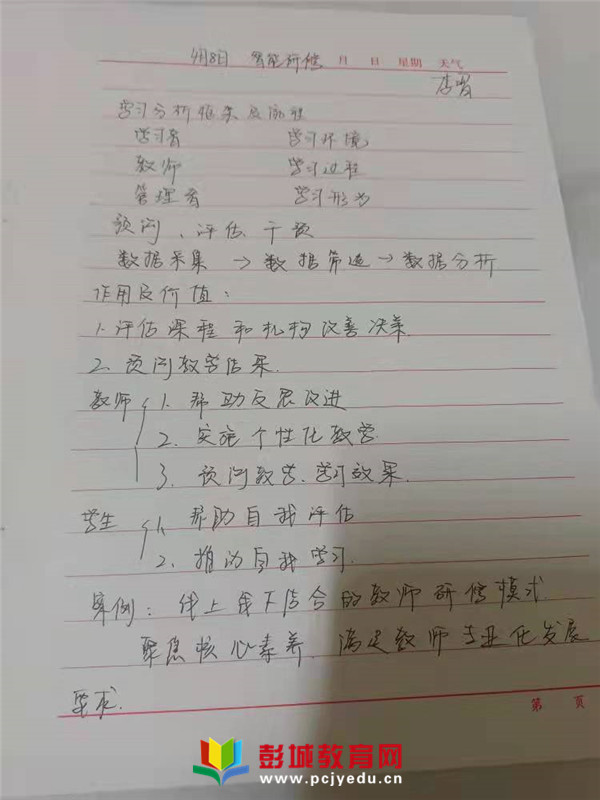 4月8日 智能研修 月 日 星期 天气
学习分析框架及流程
学习者 学习环境
教师 学习过程
管理者 学习形为
预测、评估、干预
数据采集 → 数据筛选 → 数据分析
作用及价值：
1. 评估课程和机构改善决策.
2. 预测教学结果.
教师 1. 帮助反思改进
2. 实施个性化教学.
3. 预测教学、学习效果.
学生 1. 帮助自我评估
2. 推动自我学习.
案例：线上线下结合的教师研修模式
聚焦核心素养. 满足教师专业化发展
要求.
第 页
彭城教育网
www.pcjyedu.cn